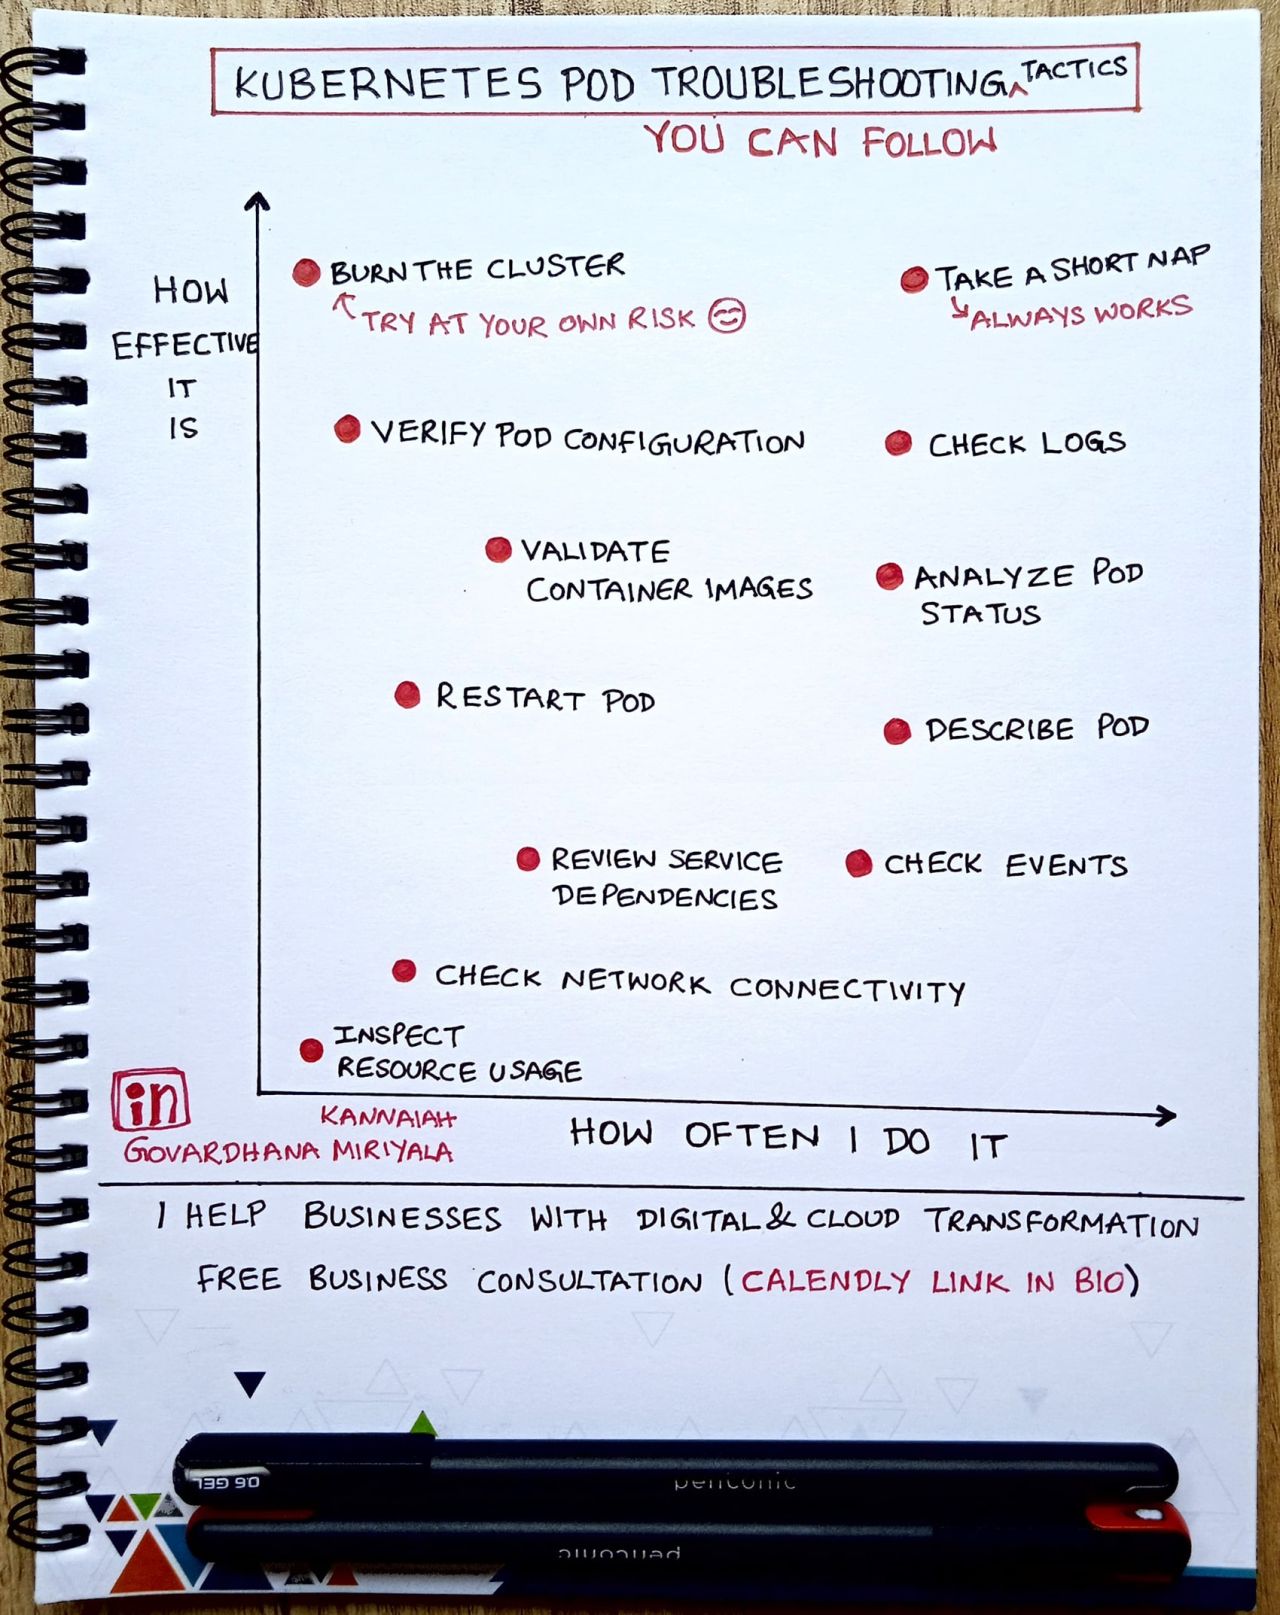 KUBERNETES POD TROUBLESHOOTING TACTICS
YOU CAN FOLLOW
HOW
EFFECTIVE
IT
IS
BURN THE CLUSTER
TRY AT YOUR OWN RISK
TAKE A SHORT NAP
ALWAYS WORKS
VERIFY POD CONFIGURATION
CHECK LOGS
VALIDATE
CONTAINER IMAGES
ANALYZE POD
STATUS
RESTART POD
DESCRIBE POD
REVIEW SERVICE
DEPENDENCIES
CHECK EVENTS
CHECK NETWORK CONNECTIVITY
INSPECT
RESOURCE USAGE
in
KANNAIAH
GOVARDHANA MIRIYALA
HOW OFTEN I DO IT
I HELP BUSINESSES WITH DIGITAL & CLOUD TRANSFORMATION
FREE BUSINESS CONSULTATION (CALENDLY LINK IN BIO)
0.6 GEL
pentonic
pentonic